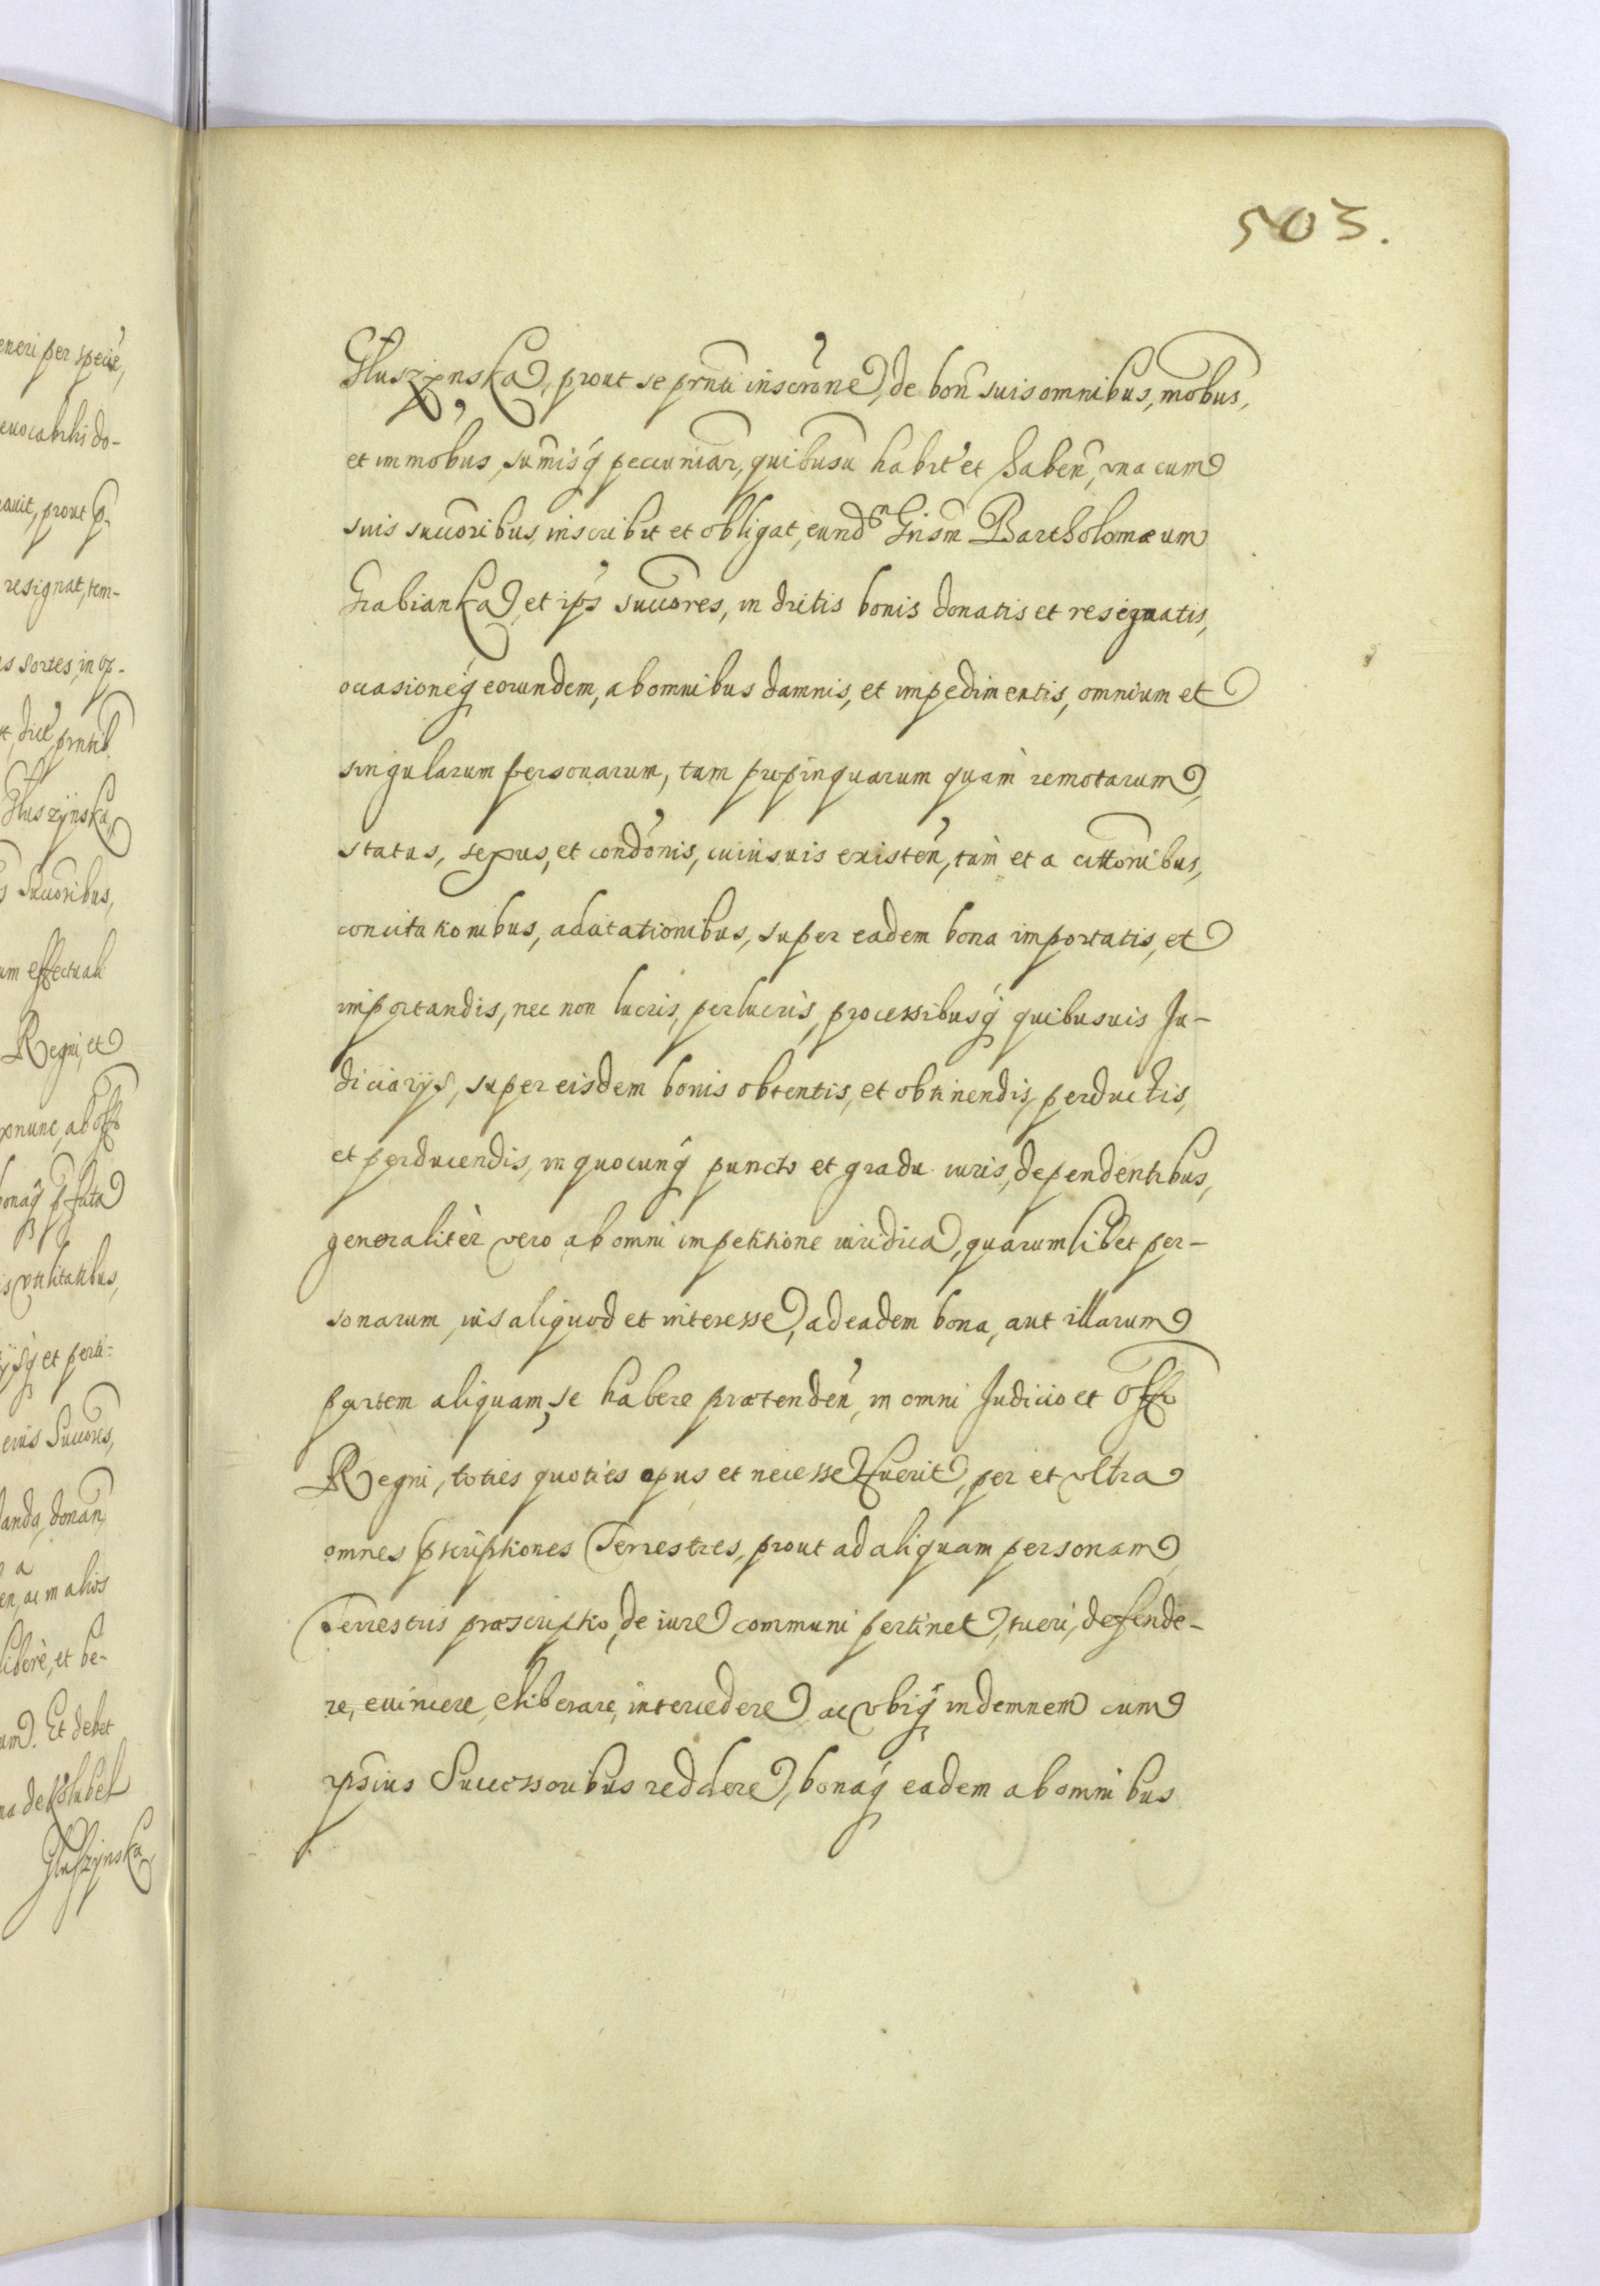 503.
Głuszynska, prout se prnti inscrone, de bon suis omnibus, mobus,
et immobus, sumisq pecuniar, quibusu habit et haben, vna cum
suis succoribus, inscribit et obligat, eund Gnsm Bartholomæum
Grabianka, et ips succores, in dictis bonis donatis et resignatis,
occasioneq eorundem, ab omnibus damnis, et impedimentis, omnium et
singularum personarum, tam propinquarum quàm remotarum,
status, sexus, et condonis, cuiusuis existen, tum et a cittonibus,
concitationibus, adcitationibus, super eadem bona importatis, et
importandis, nec non lucris, perlucris, processibusq quibusuis Ju-
diciarijs, super eisdem bonis obtentis, et obtinendis, perductis,
et perducendis, in quocunq puncto et gradu iuris, dependentibus,
generalitèr vero ab omni impetitione iuridica, quarumlibet per-
sonarum, ius aliquod et interesse, ad eadem bona, aut illarum
partem aliquam, se habere prætenden, in omni Judicio et Offo
Regni, toties quoties opus et necesse fuerit, per et vltra
omnes pscriptiones Terrestres, prout ad aliquam personam
Terrestris præscriptio, de iure communi pertinet, tueri, defende-
re, euincere, eliberare, intercedere, ac vbiq indemnem cum
ipsius Successoribus reddere, bonaq eadem ab omnibus
eneri per specie,
euocabilis do-
auit, prout p-
resignat, tem-
s sortes, in
dict prntib
Głuszÿnska,
Succoribus,
um effectuali
Regni, et
nunc, ab offo
bonaq pfata
is vtilitatibus,
et perti-
eius Succores,
anda, donan
a
en, ac in alios
liberè, et be-
um. Et debet
Głuszÿnska